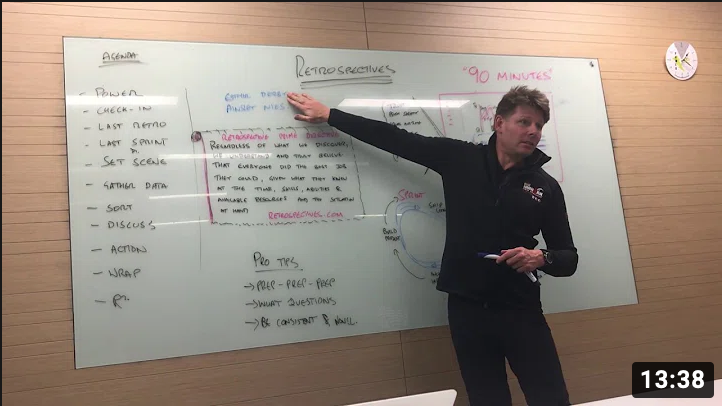 AGENDA
- POWER
- CHECK-IN
- LAST RETRO
- LAST SPRINT
- SET SCENE
- GATHER DATA
- SORT
- DISCUSS
- ACTION
- WRAP
- R²
RETROSPECTIVES
"90 MINUTES"
ESTHER DERBY
AINSLEY NIES
RETROSPECTIVE PRIME DIRECTIVE
REGARDLESS OF WHAT WE DISCOVER,
WE UNDERSTAND AND TRULY BELIEVE
THAT EVERYONE DID THE BEST JOB
THEY COULD, GIVEN WHAT THEY KNEW
AT THE TIME, SKILLS, ABILITIES &
AVAILABLE RESOURCES AND THE SITUATION
AT HAND
RETROSPECTIVES.COM
PRO TIPS
→ PREP - PREP - PREP
→ WHAT QUESTIONS
→ BE CONSISTENT &
SPRINT
BUILD
13:38